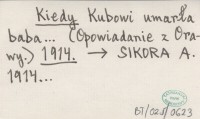 Kiedy Kubowi umarła
baba... (Opowiadanie z Ora-
wy.) 1914. → SIKORA A.
1914...
BT/025/0623